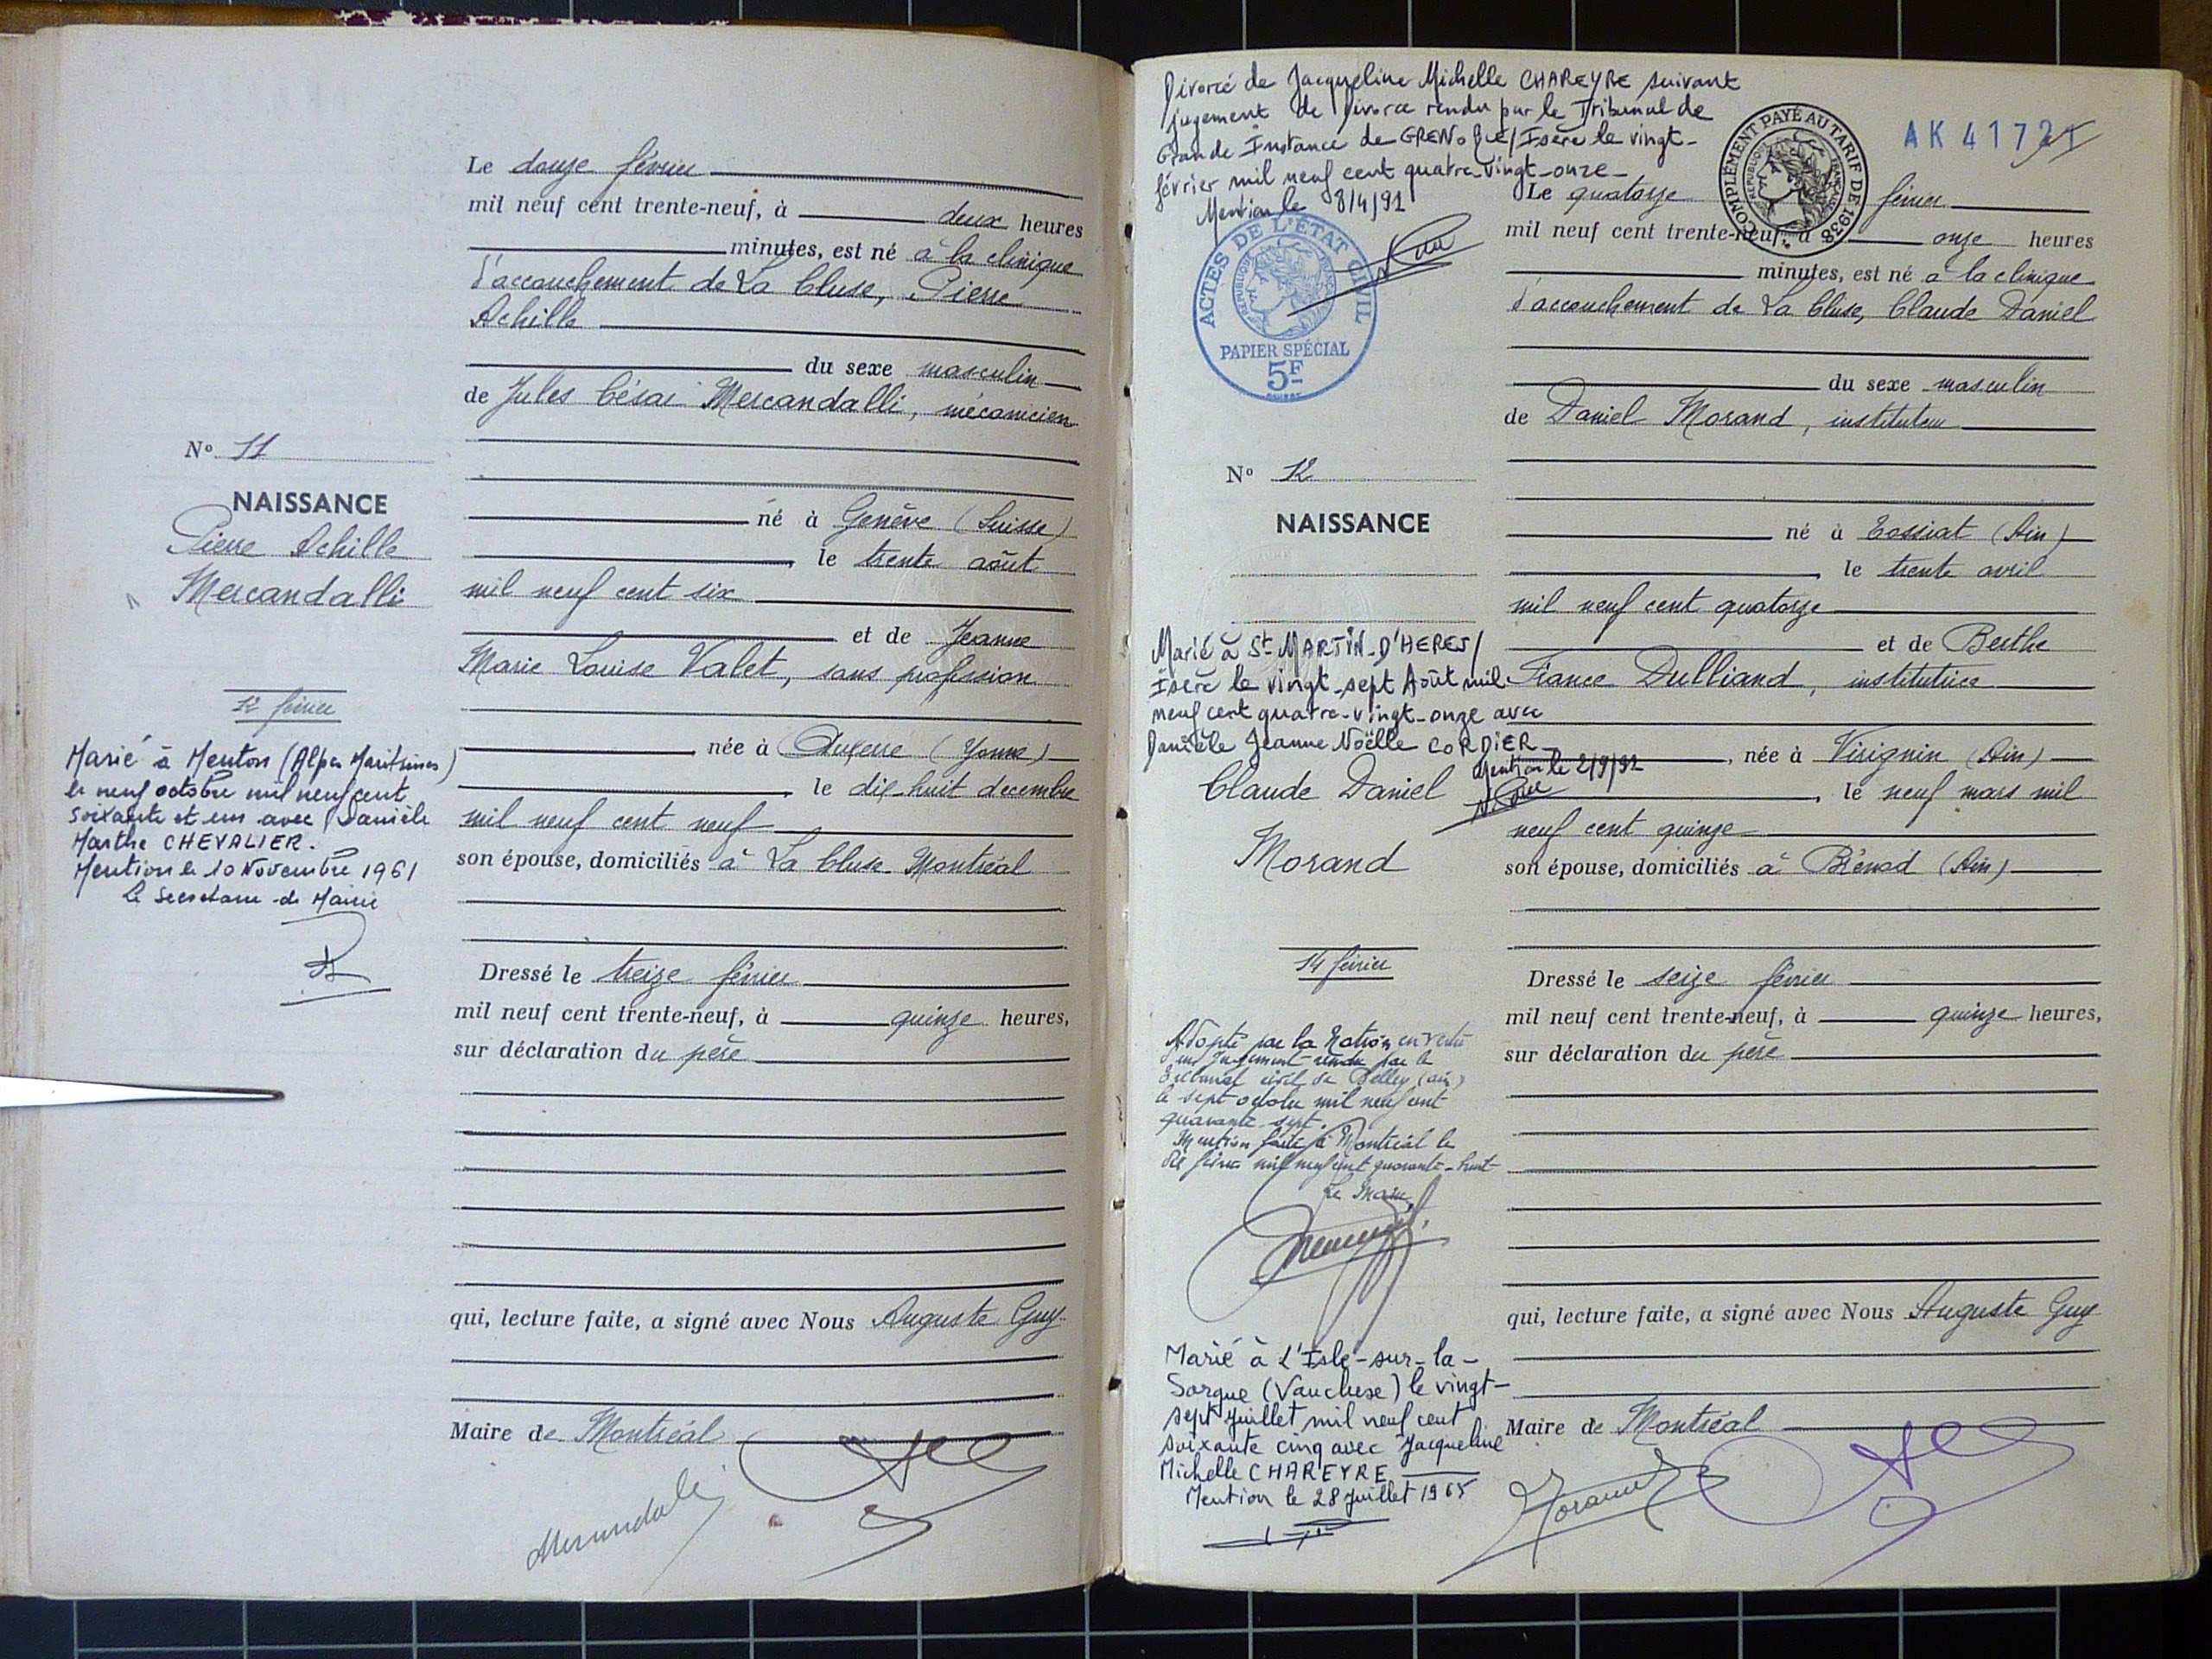 Le douze février
mil neuf cent trente-neuf, à deux heures
minutes, est né à la clinique
d'accouchement de La Cluse, Pierre
Achille
du sexe masculin
de Jules César Mercandalli, mécanicien
né à Genève (Suisse)
, le trente août
mil neuf cent six
et de Jeanne
Marie Louise Valet, sans profession
, née à Auxerre (Yonne)
, le dix-huit decembre
mil neuf cent neuf
son épouse, domiciliés à La Cluse Montréal
Dressé le treize février
mil neuf cent trente-neuf, à quinze heures,
sur déclaration du père
qui, lecture faite, a signé avec Nous Auguste Guy
Maire de Montréal
Nº 11
NAISSANCE
Pierre Achille
Mercandalli
12 février
Marié à Menton (Alpes Maritimes)
le neuf octobre mil neuf cent
soixante et un avec Danièle
Marthe CHEVALIER.
Mention le 10 Novembre 1961
Le Secrétaire de Mairie
Divorcé de Jacqueline Michelle CHAREYRE suivant
jugement de Divorce rendu par le Tribunal de
Grande Instance de GRENOBLE/Isère le vingt-
février mil neuf cent quatre-vingt-onze-
Mention le 8/4/91
ACTES DE L'ÉTAT CIVIL
RÉPUBLIQUE FRANÇAISE
PAPIER SPÉCIAL
5F
COMPLÉMENT PAYÉ AU TARIF DE 1938
RÉPUBLIQUE FRANÇAISE
AK 417
Le quatorze février
mil neuf cent trente-neuf, à onze heures
minutes, est né à la clinique
d'accouchement de La Cluse, Claude Daniel
du sexe masculin
de Daniel Morand, instituteur
né à Tossiat (Ain)
, le trente avril
mil neuf cent quatorze
et de Berthe
France Dulliand, institutrice
, née à Virignin (Ain)
, le neuf mars mil
neuf cent quinze
son épouse, domiciliés à Brénod (Ain)
Dressé le seize février
mil neuf cent trente-neuf, à quinze heures,
sur déclaration du père
qui, lecture faite, a signé avec Nous Auguste Guy
Maire de Montréal
Morand
Nº 12
NAISSANCE
Marié à St MARTIN-D'HERES/
Isère le vingt-sept Août mil
neuf cent quatre-vingt-onze avec
Danièle Jeanne Noëlle CORDIER
Mention le 2/9/91
Claude Daniel
Morand
14 février
Adopté par la Nation en vertu
d'un jugement rendu par le
Tribunal civil de Belley (ain)
le sept octobre mil neuf cent
quarante-sept.
Mention faite à Montréal le
dix février mil neuf cent quarante-huit
Le Maire,
Marié à L'Isle-sur-la-
Sorgue (Vaucluse) le vingt-
sept juillet mil neuf cent
soixante cinq avec Jacqueline
Michelle CHAREYRE
Mention le 28 juillet 1965